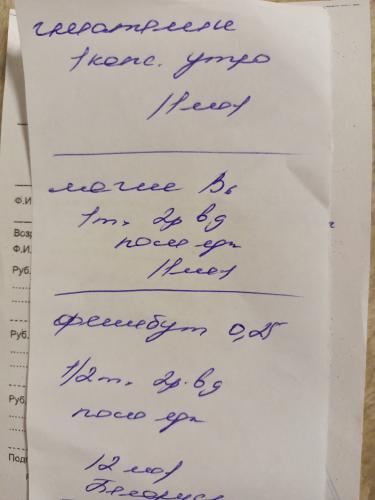 1 капс. утро
1 мес
магне В6
1 т. 2р. в д
после еды
1 мес
фенибут 0,25
1/2 т. 2р. в д
после еды
12 мес
Ф.И.
Возр
Ф.И.
Руб.
Руб.
Руб.
Подп